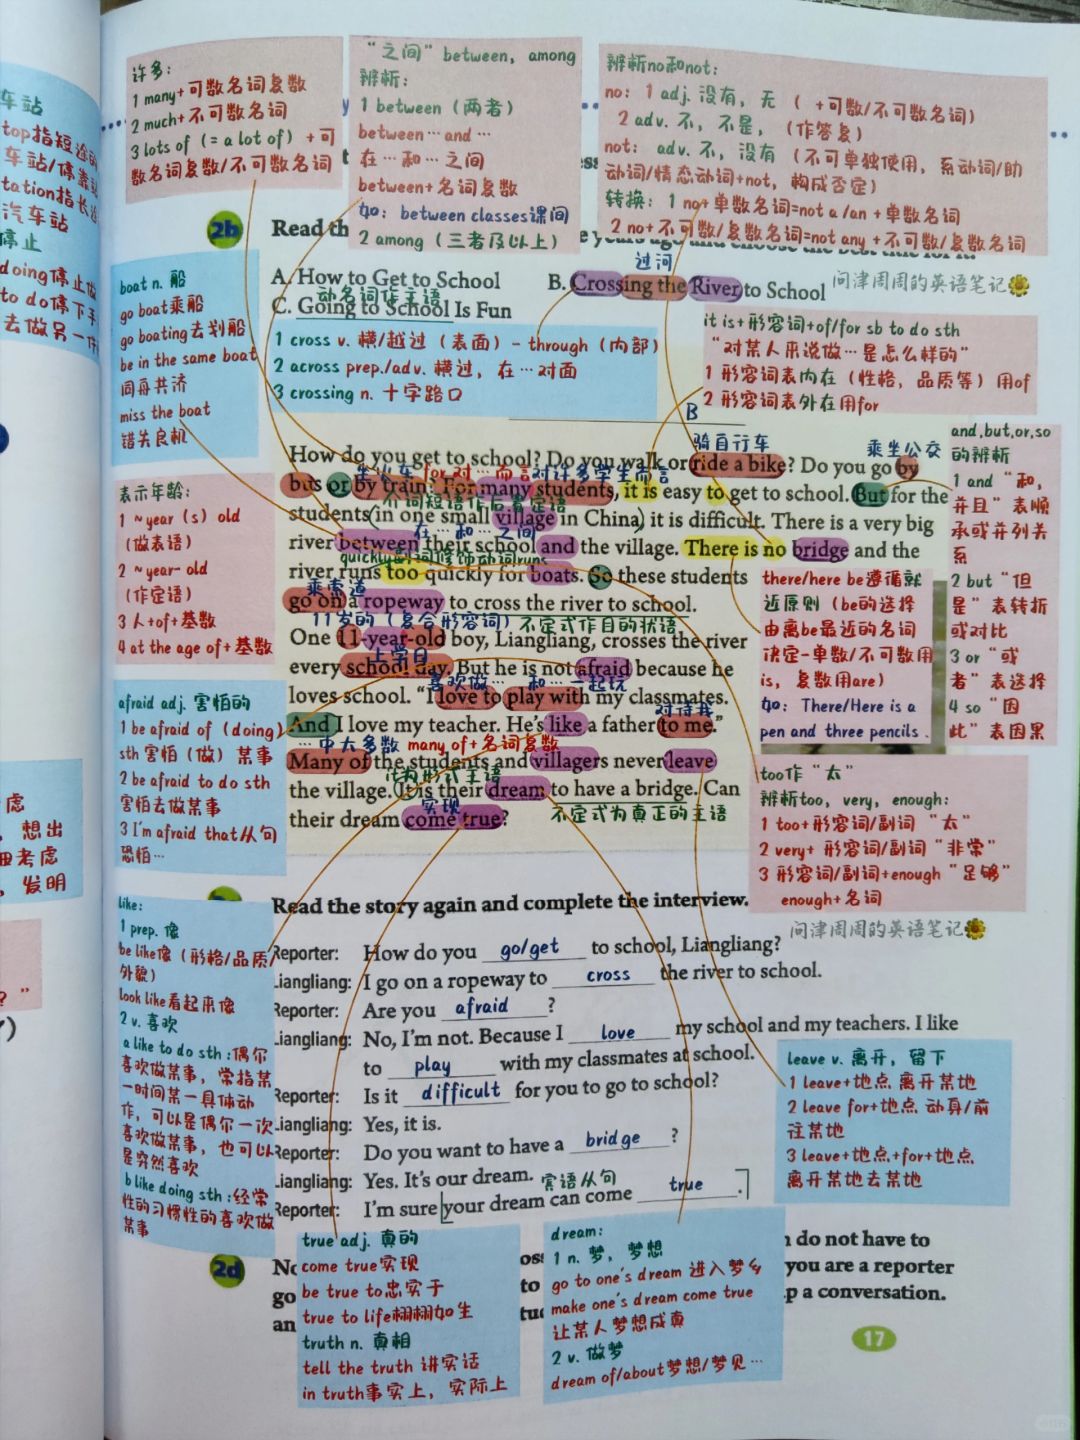 车站
top指短途的
车站/停靠站
tation指长途
汽车站
停止
doing停止做
to do停下手
去做另一件
虑
，想出
细考虑
，发明
？”
许多：
1 many+可数名词复数
2 much+不可数名词
3 lots of（= a lot of）+可
数名词复数/不可数名词
“之间”between，among
辨析：
1 between（两者）
between…and…
在…和…之间
between+名词复数
如：between classes课间
2 among（三者及以上）
辨析no和not：
no：1 adj. 没有，无（ +可数/不可数名词）
2 adv. 不，不是，（作答复）
not： adv. 不，没有（不可单独使用，系动词/助
动词/情态动词+not，构成否定）
转换：1 no+单数名词=not a /an +单数名词
2 no+不可数/复数名词=not any +不可数/复数名词
2b
Read th
过河
A. How to Get to School
B. Crossing the River to School
问津周周的英语笔记
动名词作主语
C. Going to School Is Fun
boat n. 船
go boat乘船
go boating去划船
be in the same boat
同舟共济
miss the boat
错失良机
1 cross v. 横/越过（表面）- through（内部）
2 across prep./adv. 横过，在…对面
3 crossing n. 十字路口
it is+形容词+of/for sb to do sth
“对某人来说做…是怎么样的”
1 形容词表内在（性格，品质等）用of
2 形容词表外在用for
B
骑自行车
乘坐公交
How do you get to school? Do you walk or ride a bike? Do you go by
坐火车 for 对…而言 对许多学生而言
bus or by train? For many students, it is easy to get to school. But for the
介词短语作后置定语
students (in one small village in China) it is difficult. There is a very big
在…和…之间
river between their school and the village. There is no bridge and the
quickly副词修饰动词runs
river runs too quickly for boats. So these students
乘索道
go on a ropeway to cross the river to school.
11岁的（复合形容词）不定式作目的状语
One 11-year-old boy, Liangliang, crosses the river
上学日
every school day. But he is not afraid because he
喜欢做… 和…一起玩
loves school. “I love to play with my classmates.
对待我
And I love my teacher. He’s like a father to me.”
…中大多数 many of+名词复数
Many of the students and villagers never leave
it为形式主语
the village. It is their dream to have a bridge. Can
实现
不定式为真正的主语
their dream come true?
表示年龄：
1 ~year（s）old
（做表语）
2 ~year- old
（作定语）
3 人+of+基数
4 at the age of+基数
and,but,or,so
的辨析
1 and “和，
并且”表顺
承或并列关
系
2 but “但
是”表转折
或对比
3 or “或
者”表选择
4 so “因
此”表因果
there/here be遵循就
近原则（be的选择
由离be最近的名词
决定-单数/不可数用
is，复数用are）
如：There/Here is a
pen and three pencils .
afraid adj. 害怕的
1 be afraid of（doing）
sth 害怕（做）某事
2 be afraid to do sth
害怕去做某事
3 I’m afraid that从句
恐怕…
too作“太”
辨析too，very，enough：
1 too+形容词/副词 “太”
2 very+ 形容词/副词“非常”
3 形容词/副词+enough“足够”
enough+名词
问津周周的英语笔记
Read the story again and complete the interview.
Reporter: How do you go/get to school, Liangliang?
Liangliang: I go on a ropeway to cross the river to school.
Reporter: Are you afraid ?
Liangliang: No, I’m not. Because I love my school and my teachers. I like
to play with my classmates at school.
Reporter: Is it difficult for you to go to school?
Liangliang: Yes, it is.
Reporter: Do you want to have a bridge ?
Liangliang: Yes. It’s our dream.
宾语从句
Reporter: I’m sure your dream can come true .
like：
1 prep. 像
be like像（形格/品质/
外貌）
look like看起来像
2 v. 喜欢
a like to do sth：偶尔
喜欢做某事，常指某
一时间某一具体动
作，可以是偶尔一次
喜欢做某事，也可以
是突然喜欢
b like doing sth：经常
性的习惯性的喜欢做
某事
leave v. 离开，留下
1 leave+地点 离开某地
2 leave for+地点 动身/前
往某地
3 leave+地点+for+地点
离开某地去某地
2d
do not have to
you are a reporter
p a conversation.
true adj. 真的
come true实现
be true to忠实于
true to life栩栩如生
truth n. 真相
tell the truth 讲实话
in truth事实上，实际上
dream：
1 n. 梦，梦想
go to one’s dream 进入梦乡
make one’s dream come true
让某人梦想成真
2 v. 做梦
dream of/about梦想/梦见…
17